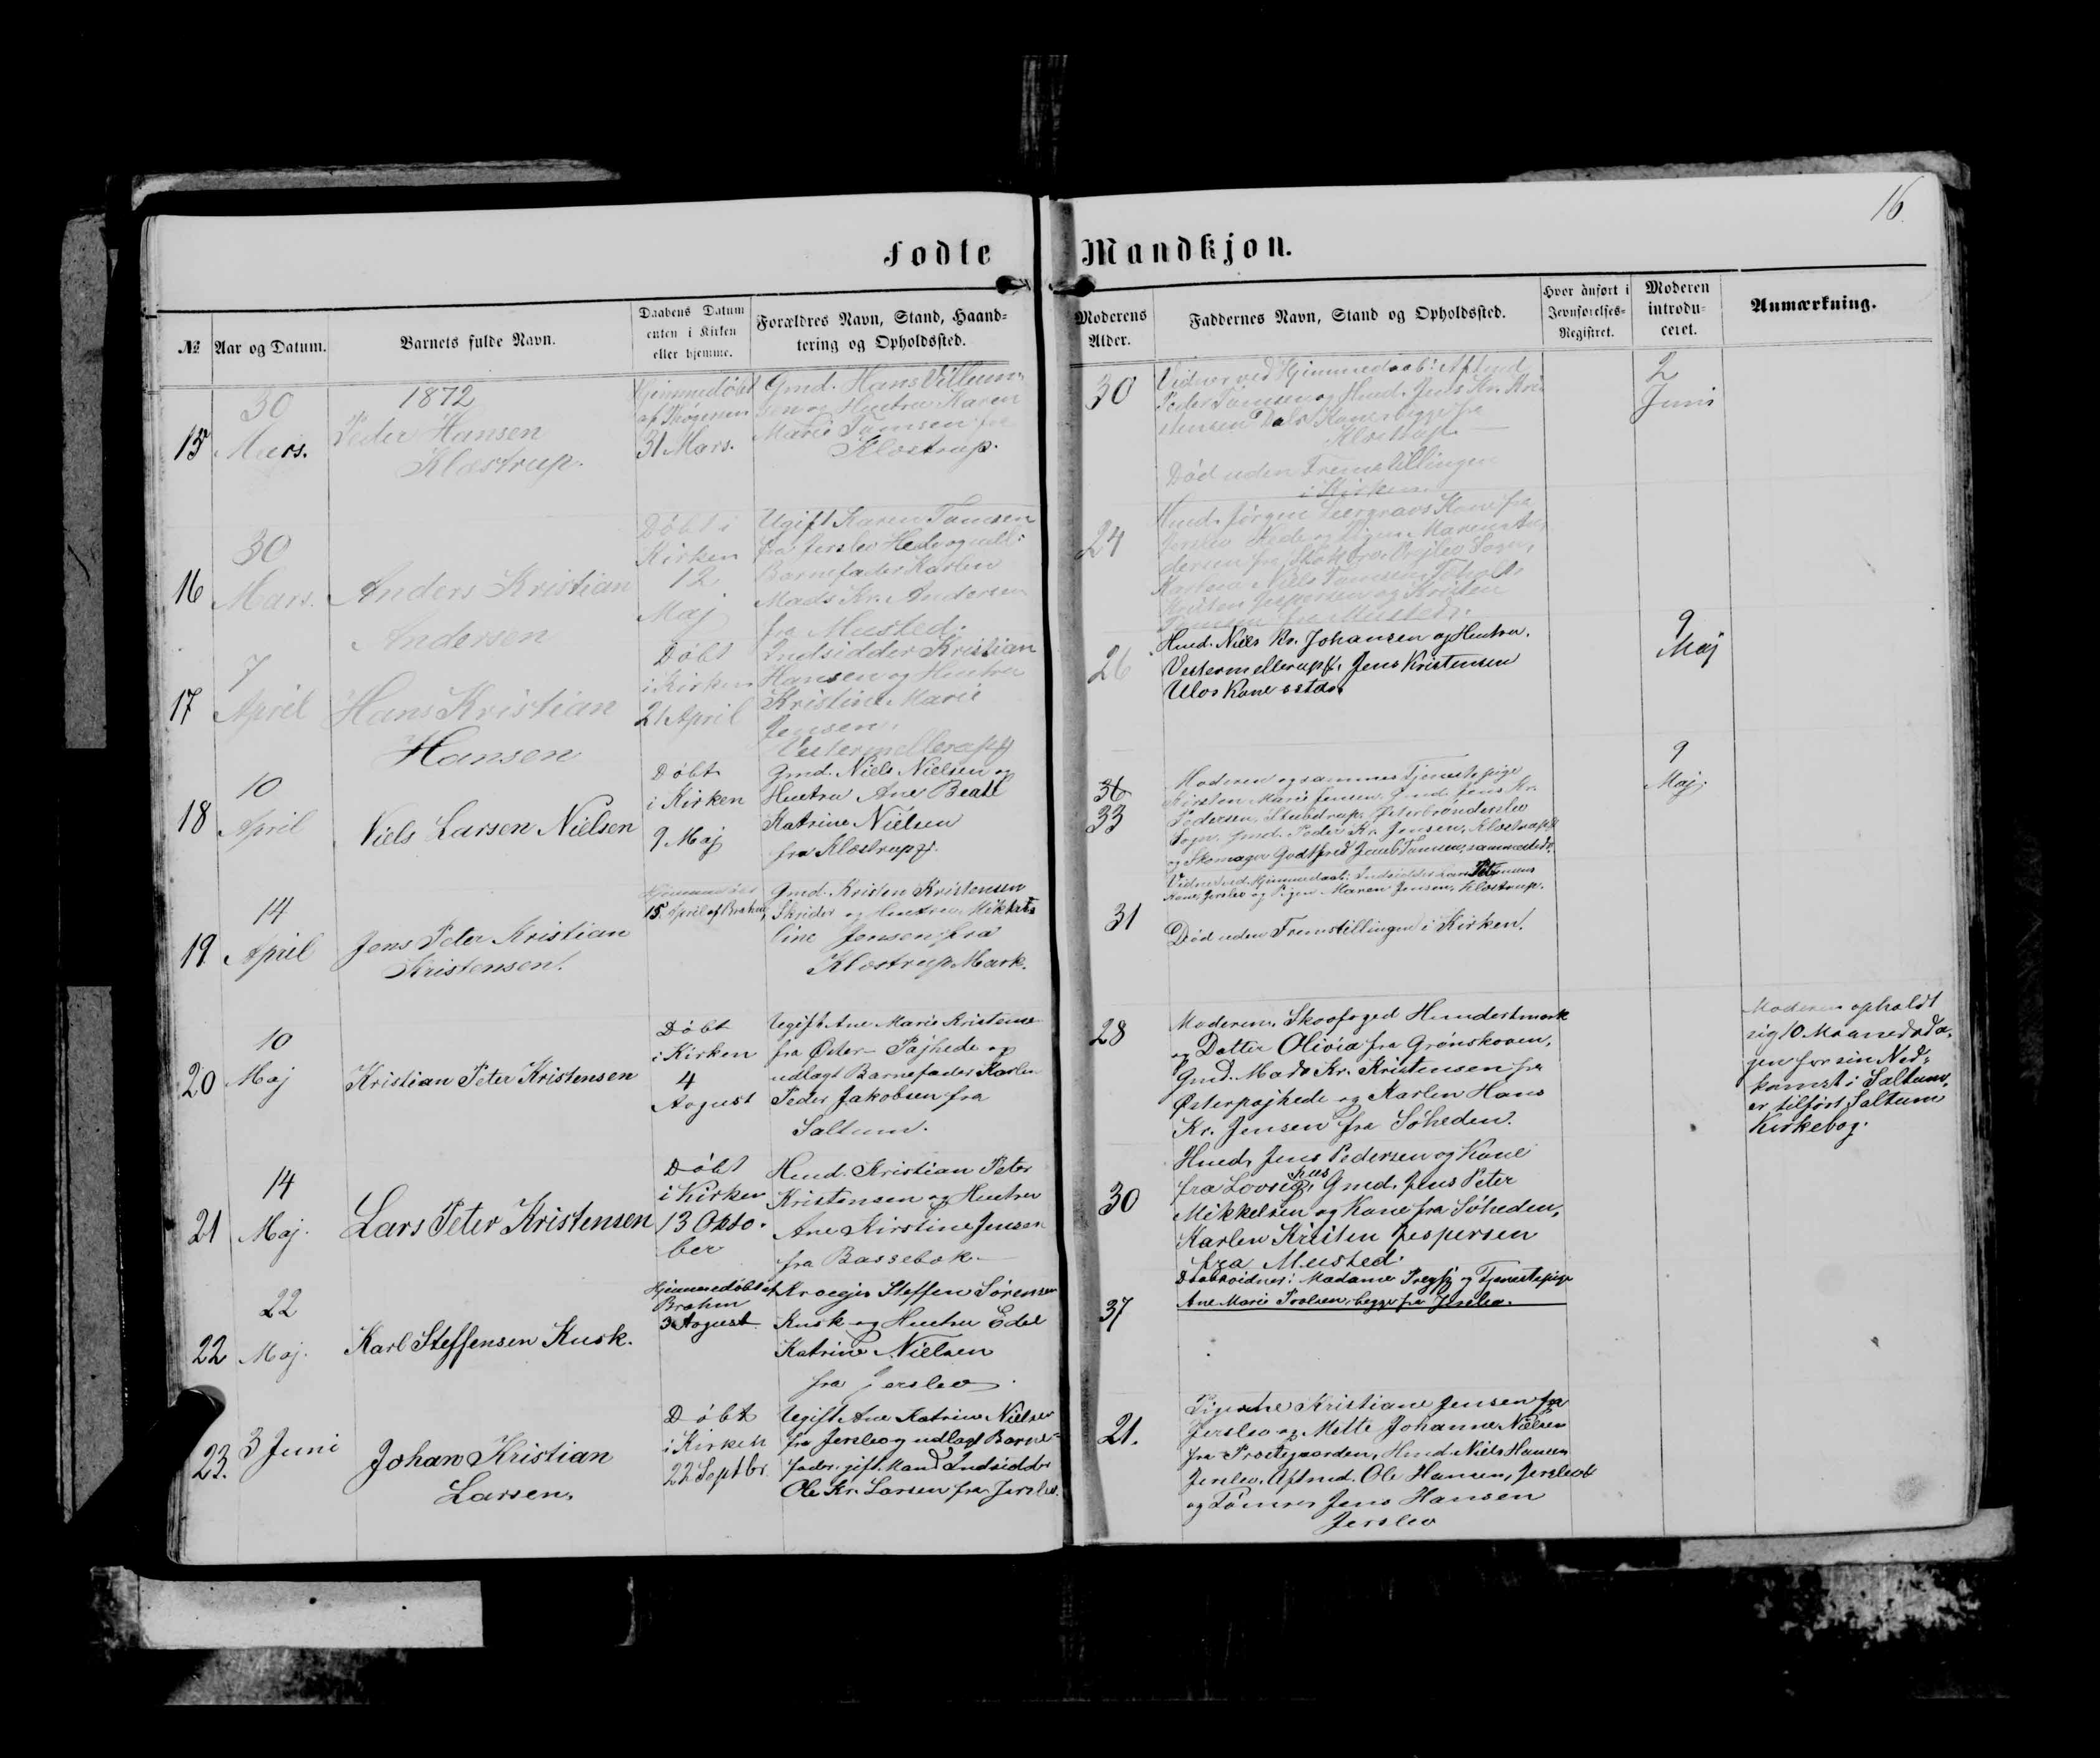 16
Fødte Mandkjøn.
№
Aar og Datum.
Barnets fulde Navn.
Daabens Datum
enten i Kirken
eller hjemme.
Forældres Navn, Stand, Haand-
tering og Opholdssted.
Moderens
Alder.
Faddernes Navn, Stand og Opholdssted.
Hvor anført i
Jevnførelses-
Registret.
Moderen
introdu-
ceret.
Anmærkning.
1872
15
30
Mars.
Peder Hansen
Klæstrup.
Hjemmedøbt
31 Mars.
Gmd. Hans Villum-
sen og Hustru Karen
Marie Tamsen fra
Klæstrup.
30
Vidner ved Hjemmedaab: Aftmd.
Peder Tamsen og Hmd. Jens Kr. Kri-
stensen Kane begge fra
Klæstrup.
Død uden Fremstillingen
i Kirken.
2
Juni
16
30
Mars.
Anders Kristian
Andersen
Døbt i
Kirken
12
Maj
Ugift Karen Tamsen
fra Jerslev Hede og udl:
Barnefader Karlen
Mads Kr. Andersen
fra Musted.
24
Hmd. Jørgen Kane fra
Jerslev Hede og Pigen Maren An-
dersen fra Sogn,
Karlene Niels Tamsen
Kristen Jespersen og Kristen
fra Musted.
17
7
April
Hans Kristian
Hansen
Døbt
i Kirken
21 April
Indsidder Kristian
Hansen og Hustru
Kristine Marie
Jensen,
Vestermellerup
26
Hmd. Niels Kr. Johansen og Hustru.
Vestermellerup, Jens Kristensen
Ulos Kane sstds.
9
Maj
18
10
April
Niels Larsen Nielsen
Døbt
i Kirken
9 Maj
Gmd. Niels Nielsen og
Hustru Ane Beate
Katrine Nielsen
fra Klæstrup.
36
33
Moderen og sammes Tjenestepige
Kirsten Marie Jensen, Gmd. Jens Kr.
Pedersen, Stubdrup, Østerbrønderslev
Sogn, Gmd. Peder Kr. Jensen, Klæstrup
og Skomager Godtfred Tamsen, sammesteds.
9
Maj.
19
14
April
Jens Peter Kristian
Kristensen.
Hjemmedøbt
15 April af Brahm,
Gmd. Kristen Kristensen
Skrider og Hustru Mikke-
line Jensen fra
Klæstrup Mark.
31
Vidner ved Hjemmedaab: Indsidder
Kane, Jerslev og Pigen Maren Jensen, Klæstrup.
Død uden Fremstillingen i Kirken.
20
10
Maj
Kristian Peter Kristensen
Døbt
i Kirken
4
Avgust
Ugift Ane Marie Kristense
fra Øster-Pajhede og
udlagt Barnefader Karlen
Peder Jakobsen fra
Saltum.
28
Moderen. Skovfoged Hundestmark
og Datter Olivia fra Grønskoven,
Gmd. Mads Kr. Kristensen fra
Østerpajhede og Karlen Hans
Kr. Jensen fra Søheden.
Moderen opholdt
sig 10 Maaneds Da-
gen før sin Ned-
komst i Saltum,
er tilført Saltum
Kirkebog.
21
14
Maj.
Lars Peter Kristensen
Døbt
i Kirken
13 Okto-
ber
Hmd. Kristian Peter
Kristensen og Hustru
Ane Kirstine Jensen
fra Bassebæk.
30
Hmd. Jens Pedersen og Kane
fra Lovsighus, Gmd. Jens Peter
Mikkelsen og Kane fra Søheden,
Karlen Kristen Jespersen
fra Musted.
22
22
Maj.
Karl Steffensen Kusk.
Hjemmedøbt af
Brahm
3 Avgust
Kroejer Steffen Sørensen
Kusk og Hustru Edel
Katrine Nielsen
fra Jerslev
37
Daabsvidner: Madame og Tjenestepige
Ane Marie Povlsen, begge fra Jerslev.
23.
3 Juni
Johan Kristian
Larsen.
Døbt
i Kirken
22 Septbr.
Ugift Ane Katrine Nielsen
fra Jerslev og udlagt Barne-
fader, gift Mand Indsidder
Ole Kr. Larsen fra Jerslev.
21.
Pigerne Kristiane Jensen fra
Jerslev og Mette Johanne Nielsen
fra Præstegaarden, Hmd. Niels Hansen
Jerslev, Aftmd. Ole Hansen, Jerslev
og Tømrer Jens Hansen
Jerslev